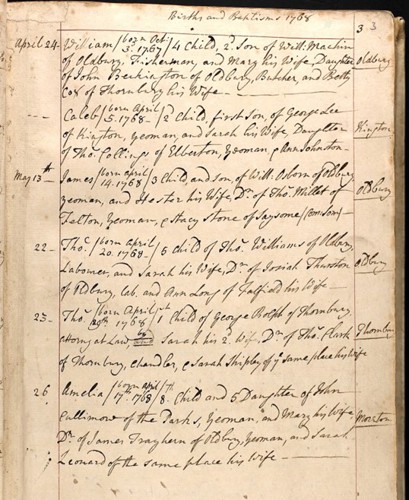 Births and Baptisms 1768
3 3
April 24 - William / born Oct. 3d. 1767 / 4 Child, 2d. Son of Will. Machin
of Oldbury, Fisherman, and Mary his Wife, Daughter Oldbury
of John Beckington of Oldbury, Butcher, and Betty
Cox of Thornbury his Wife —
--- Caleb / born April 5. 1768 / 2 Child, first Son, of George Lee
of Kington, Yeoman, and Sarah his Wife, Daughter Kington
of Thos. Collings of Elberton, Yeoman & Ann Johnston.
May 13th James / born April 14. 1768 / 3 Child and Son, of Will. Osborn of Oldbury
yeoman, and Hester his Wife, Dr. of Thos. Millet of Oldbury
Felton, Yeoman, & Stacy Stone of Saysome / Com Som / —
22 - Thos. / born April 20. 1768 / 5 Child of Thos. Williams of Oldbury,
Labourer, and Sarah his Wife, Dr. of Josiah Thurston Oldbury
of Oldbury, Lab. and Ann Long of Falfield his Wife —
23 - Thos. / born April 29th 1768 / 1st Child of George Rolph of Thornbury
Attorny at Law by and Sarah his 2 Wife, Dr. of Thos. Clark Thornbury
of Thornbury, Chandler, & Sarah Shipley of ye same place his Wife
26 Amelia / born April 17th. 1768 / 8th. Child and 5 Daughter of John
Cullimore of the Parks, Yeoman, and Mary his Wife Moreton
Dr. of James Trayhern of Oldbury, Yeoman, and Sarah
Leonard of the same place his Wife —